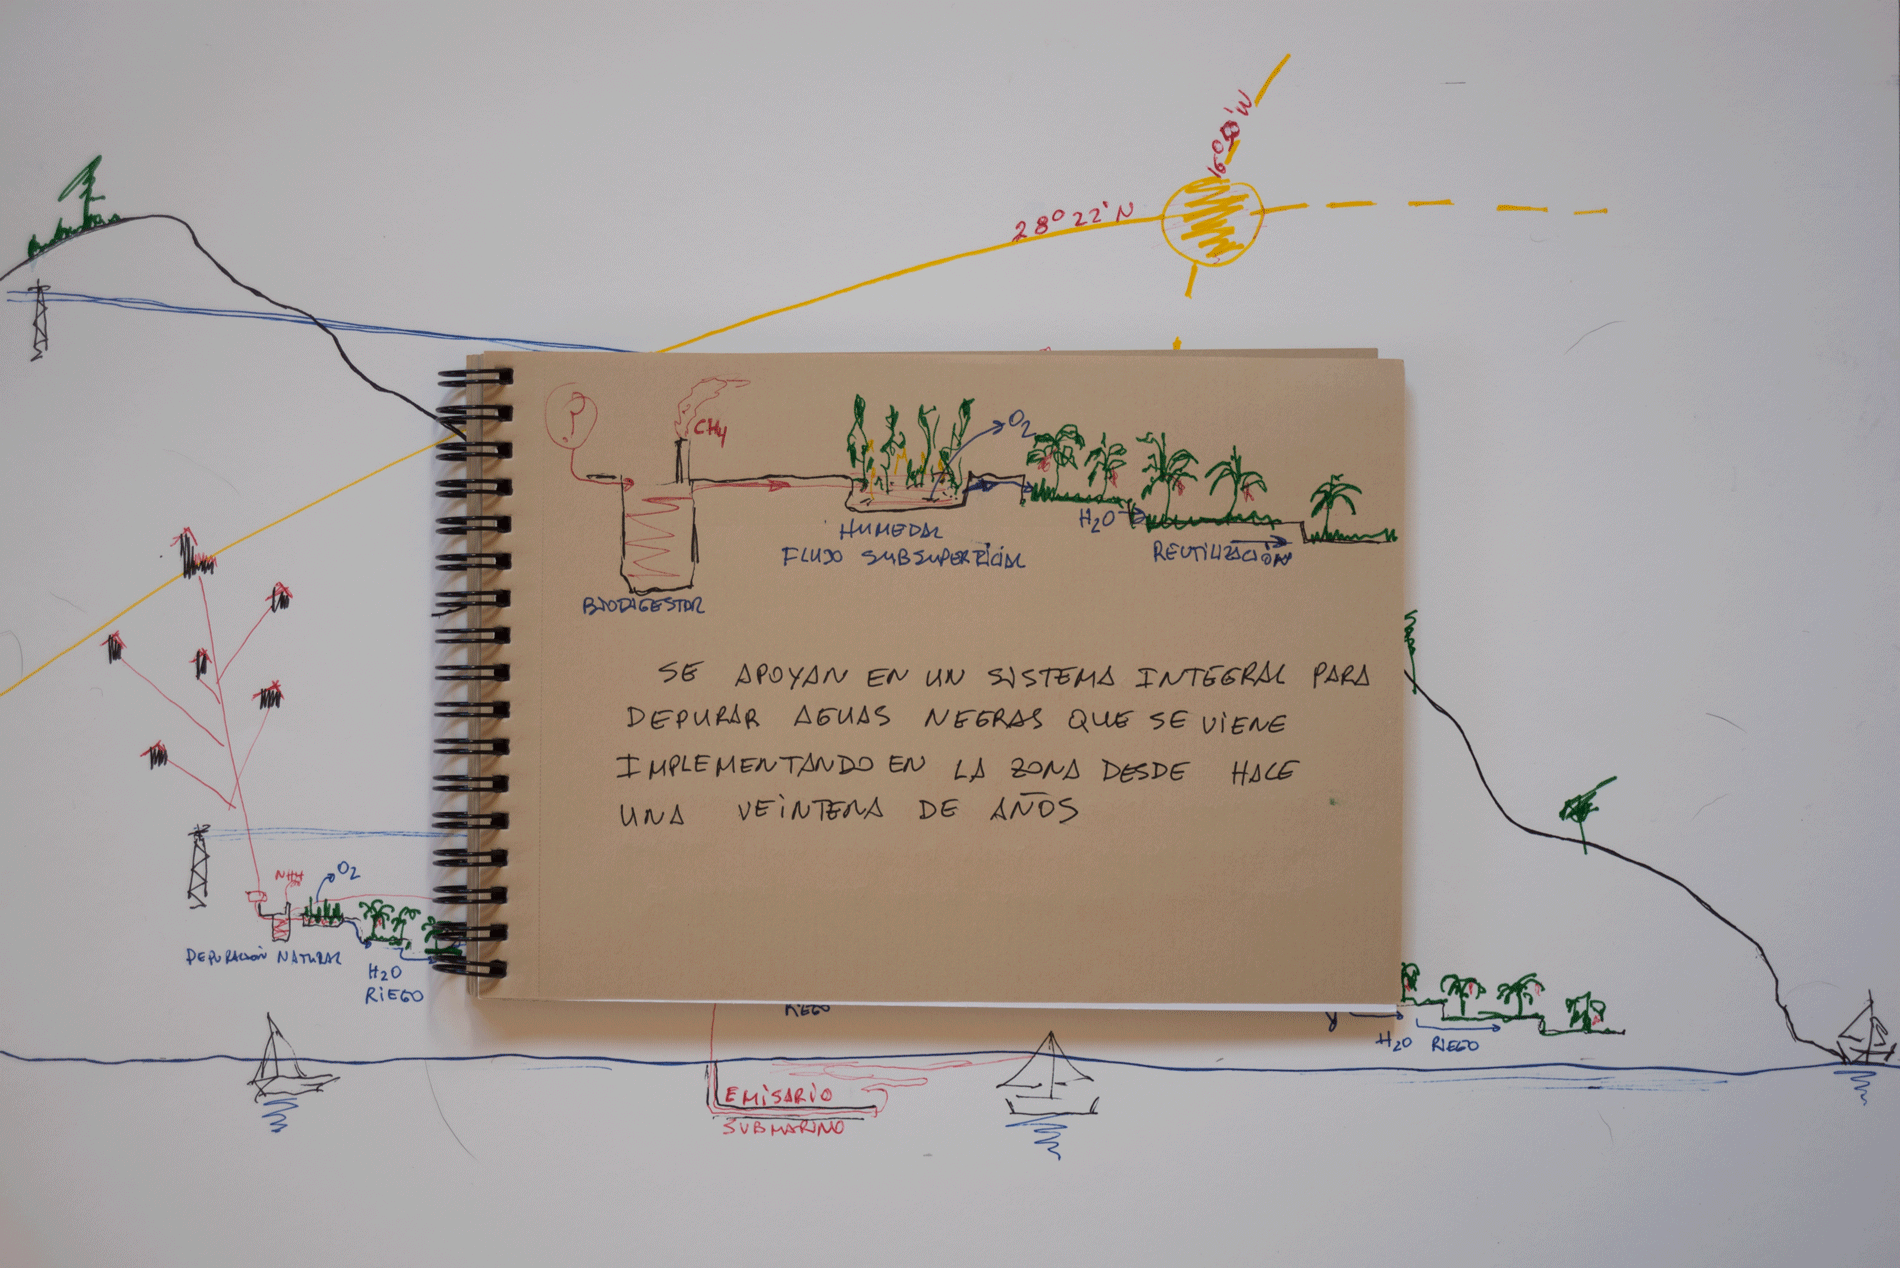 16°50'W
28°22'N
?
CH4
O2
HUMEDAL
FLUJO SUBSUPERFICIAL
H2O
REUTILIZACIÓN
BIODIGESTOR
SE APOYAN EN UN SISTEMA INTEGRAL PARA
DEPURAR AGUAS NEGRAS QUE SE VIENE
IMPLEMENTANDO EN LA ZONA DESDE HACE
UNA VEINTENA DE AÑOS
O2
DEPURACIÓN NATURAL
H2O
RIEGO
RIEGO
H2O RIEGO
EMISARIO
SUBMARINO